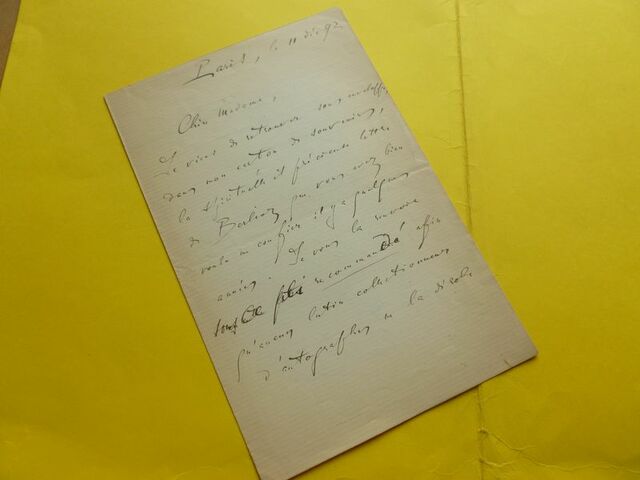 Paris, le 11 déc 92
Chère Madame,
Je viens de retrouver sous enveloppe,
dans mon carton de souvenirs,
la spirituelle et précieuse lettre
de Berlioz que vous avez bien
voulu me confier il y a quelques
années. Je vous la renvoie
sous pli recommandé afin
qu'aucun lutin collectionneur
d'autographes ne la dérobe